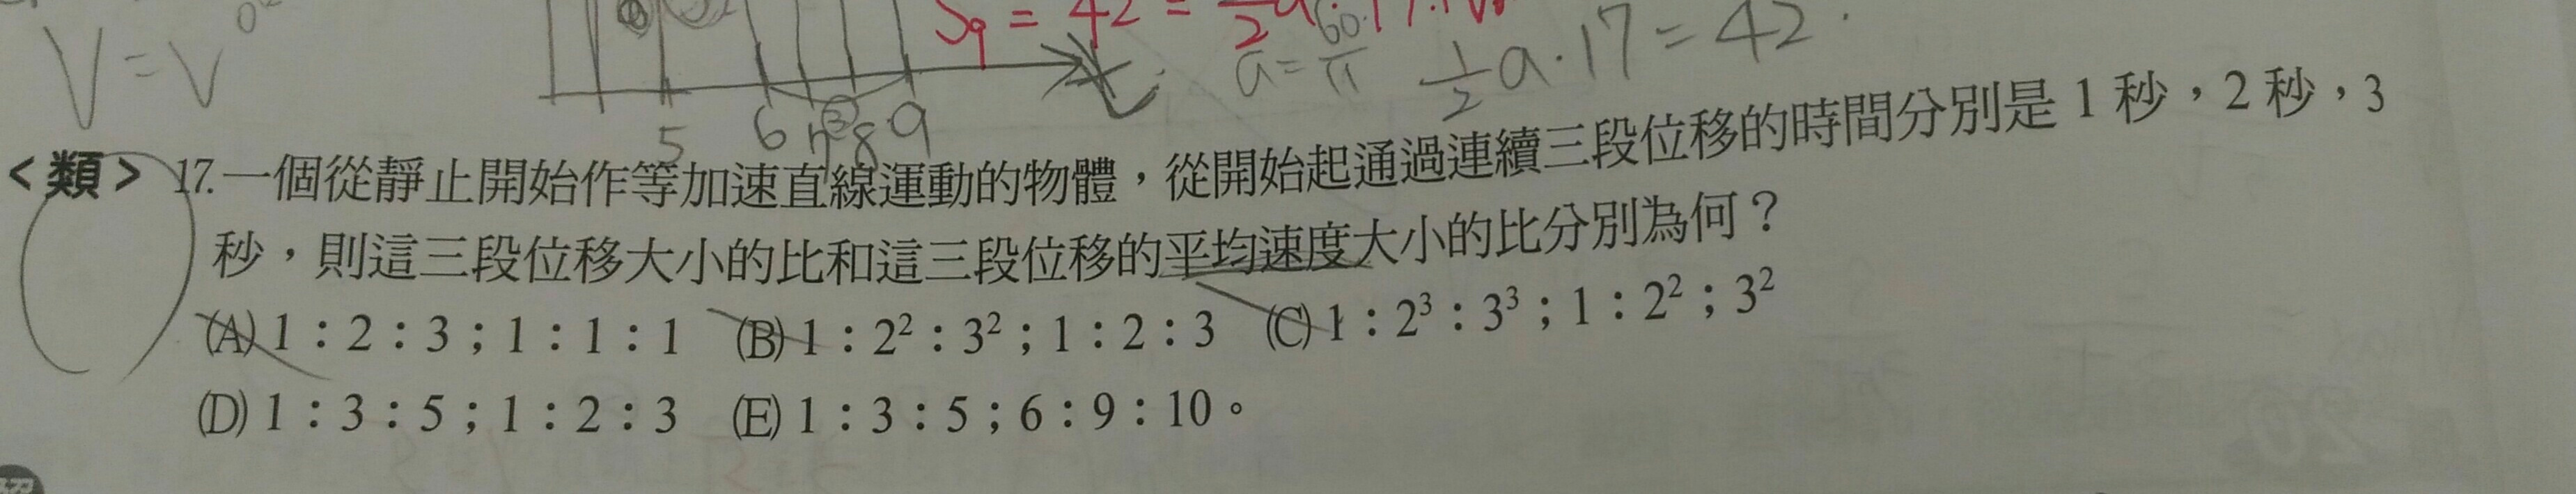 S₉ = 42 =
V = V₀²
a = 60/11
1/2 a·17 = 42
5 6 7 8 9
③
<類> 17.一個從靜止開始作等加速直線運動的物體，從開始起通過連續三段位移的時間分別是 1 秒，2 秒，3
秒，則這三段位移大小的比和這三段位移的平均速度大小的比分別為何？
(A) 1：2：3；1：1：1 (B) 1：2²：3²；1：2：3 (C) 1：2³：3³；1：2²；3²
(D) 1：3：5；1：2：3 (E) 1：3：5；6：9：10。